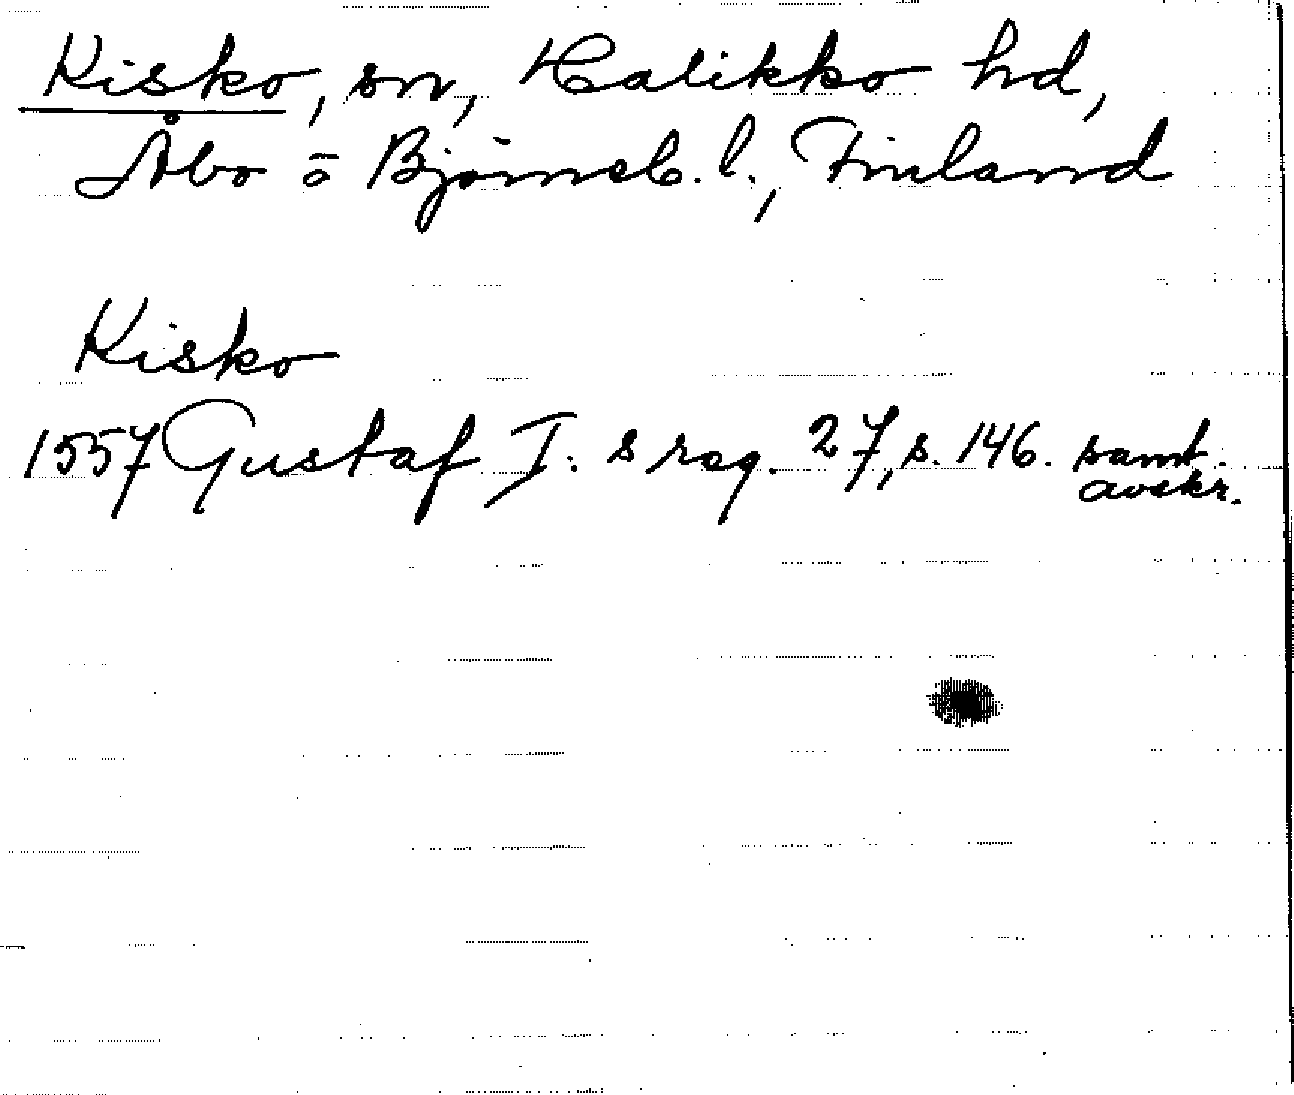 Kisko, sn, Halikko hd,
Åbo o Björneb. l., Finland
Kisko
1557 Gustaf I:s reg. 27, s. 146. samt.
avskr.